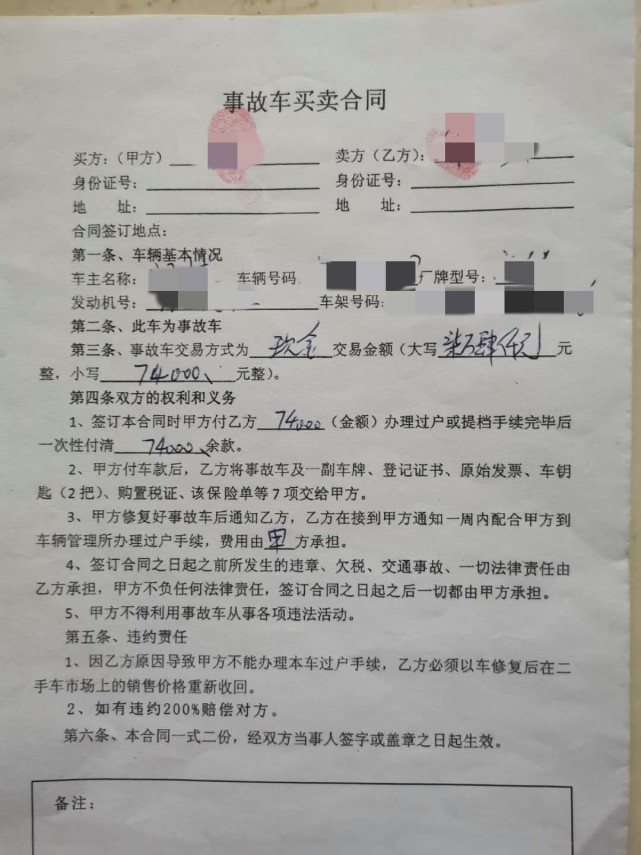 事故车买卖合同
买方：（甲方） 卖方（乙方）：
身份证号： 身份证号：
地　址： 地　址：
合同签订地点：
第一条、车辆基本情况
车主名称： 车辆号码 厂牌型号：
发动机号： 车架号码：
第二条、此车为事故车
第三条、事故车交易方式为 现金 交易金额（大写 柒万肆仟元 元
整，小写 74000、 元整）。
第四条双方的权利和义务
1、签订本合同时甲方付乙方 74000 （金额）办理过户或提档手续完毕后
一次性付清 74000、 余款。
2、甲方付车款后，乙方将事故车及一副车牌、登记证书、原始发票、车钥
匙（2 把）、购置税证、该保险单等 7 项交给甲方。
3、甲方修复好事故车后通知乙方，乙方在接到甲方通知一周内配合甲方到
车辆管理所办理过户手续，费用由 甲 方承担。
4、签订合同之日起之前所发生的违章、欠税、交通事故、一切法律责任由
乙方承担，甲方不负任何法律责任，签订合同之日起之后一切都由甲方承担。
5、甲方不得利用事故车从事各项违法活动。
第五条、违约责任
1、因乙方原因导致甲方不能办理本车过户手续，乙方必须以车修复后在二
手车市场上的销售价格重新收回。
2、如有违约200%赔偿对方。
第六条、本合同一式二份，经双方当事人签字或盖章之日起生效。
备注：